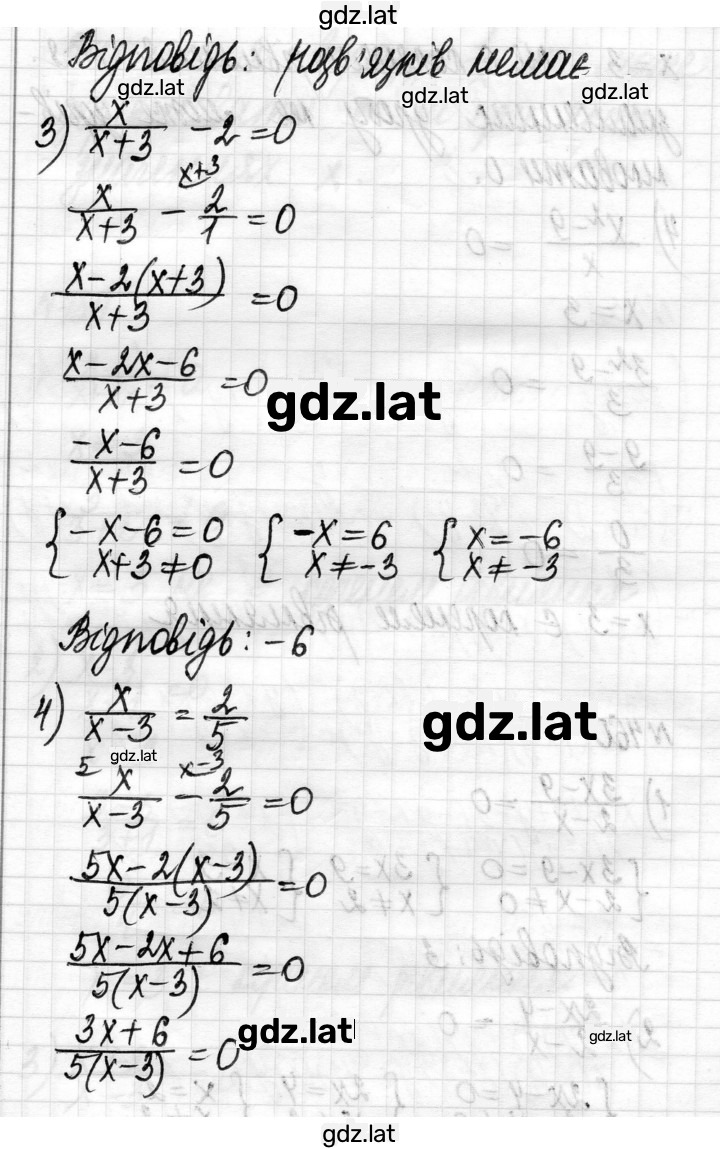 gdz.lat
Відповідь: розв'язків немає
gdz.lat gdz.lat gdz.lat
3) x/(x+3) - 2 = 0
x/(x+3) - 2/1 = 0 (x+3
(x-2(x+3))/(x+3) = 0
(x-2x-6)/(x+3) = 0
gdz.lat
(-x-6)/(x+3) = 0
{-x-6=0 {-x=6 {x=-6
x+3≠0 x≠-3 x≠-3
Відповідь: -6
4) x/(x-3) = 2/5
gdz.lat
gdz.lat
5 x/(x-3) - x-3 2/5 = 0
(5x-2(x-3))/(5(x-3)) = 0
(5x-2x+6)/(5(x-3)) = 0
(3x+6)/(5(x-3)) = 0
gdz.lat
gdz.lat
gdz.lat